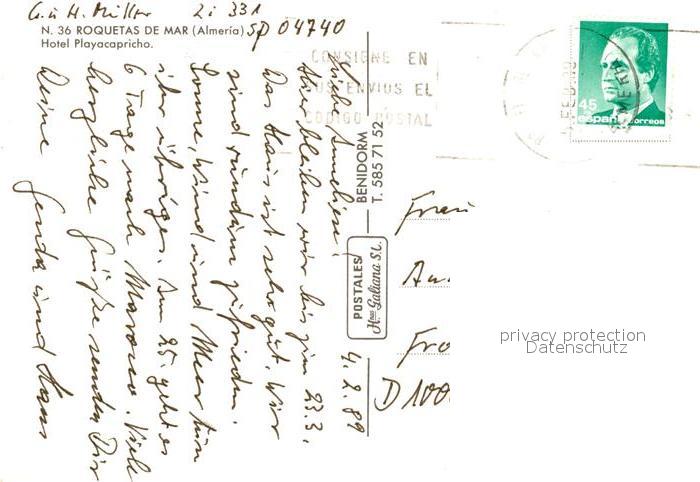 G. u H. Müller Zi 331
SP 04740
N. 36 ROQUETAS DE MAR (Almería)
Hotel Playacapricho.
CONSIGNE EN
SUS ENVIOS EL
CODIGO POSTAL
45
españa correos
4. 2. 89
Liebe Anneliese!
Hier bleiben wir bis zum 23.3.
Das Haus ist sehr gut. Wir
sind rundum zufrieden.
Sonne, Wind und Meer tun
ihr übriges. Am 25. geht es
6 Tage nach Marocco. Viele
herzliche Grüße senden Dir
Deine Gerda und Hans
BENIDORM
T. 585 71 52
POSTALES
Hnos Galiana S.L.
Frau
An
Fro
D 100
privacy protection
Datenschutz